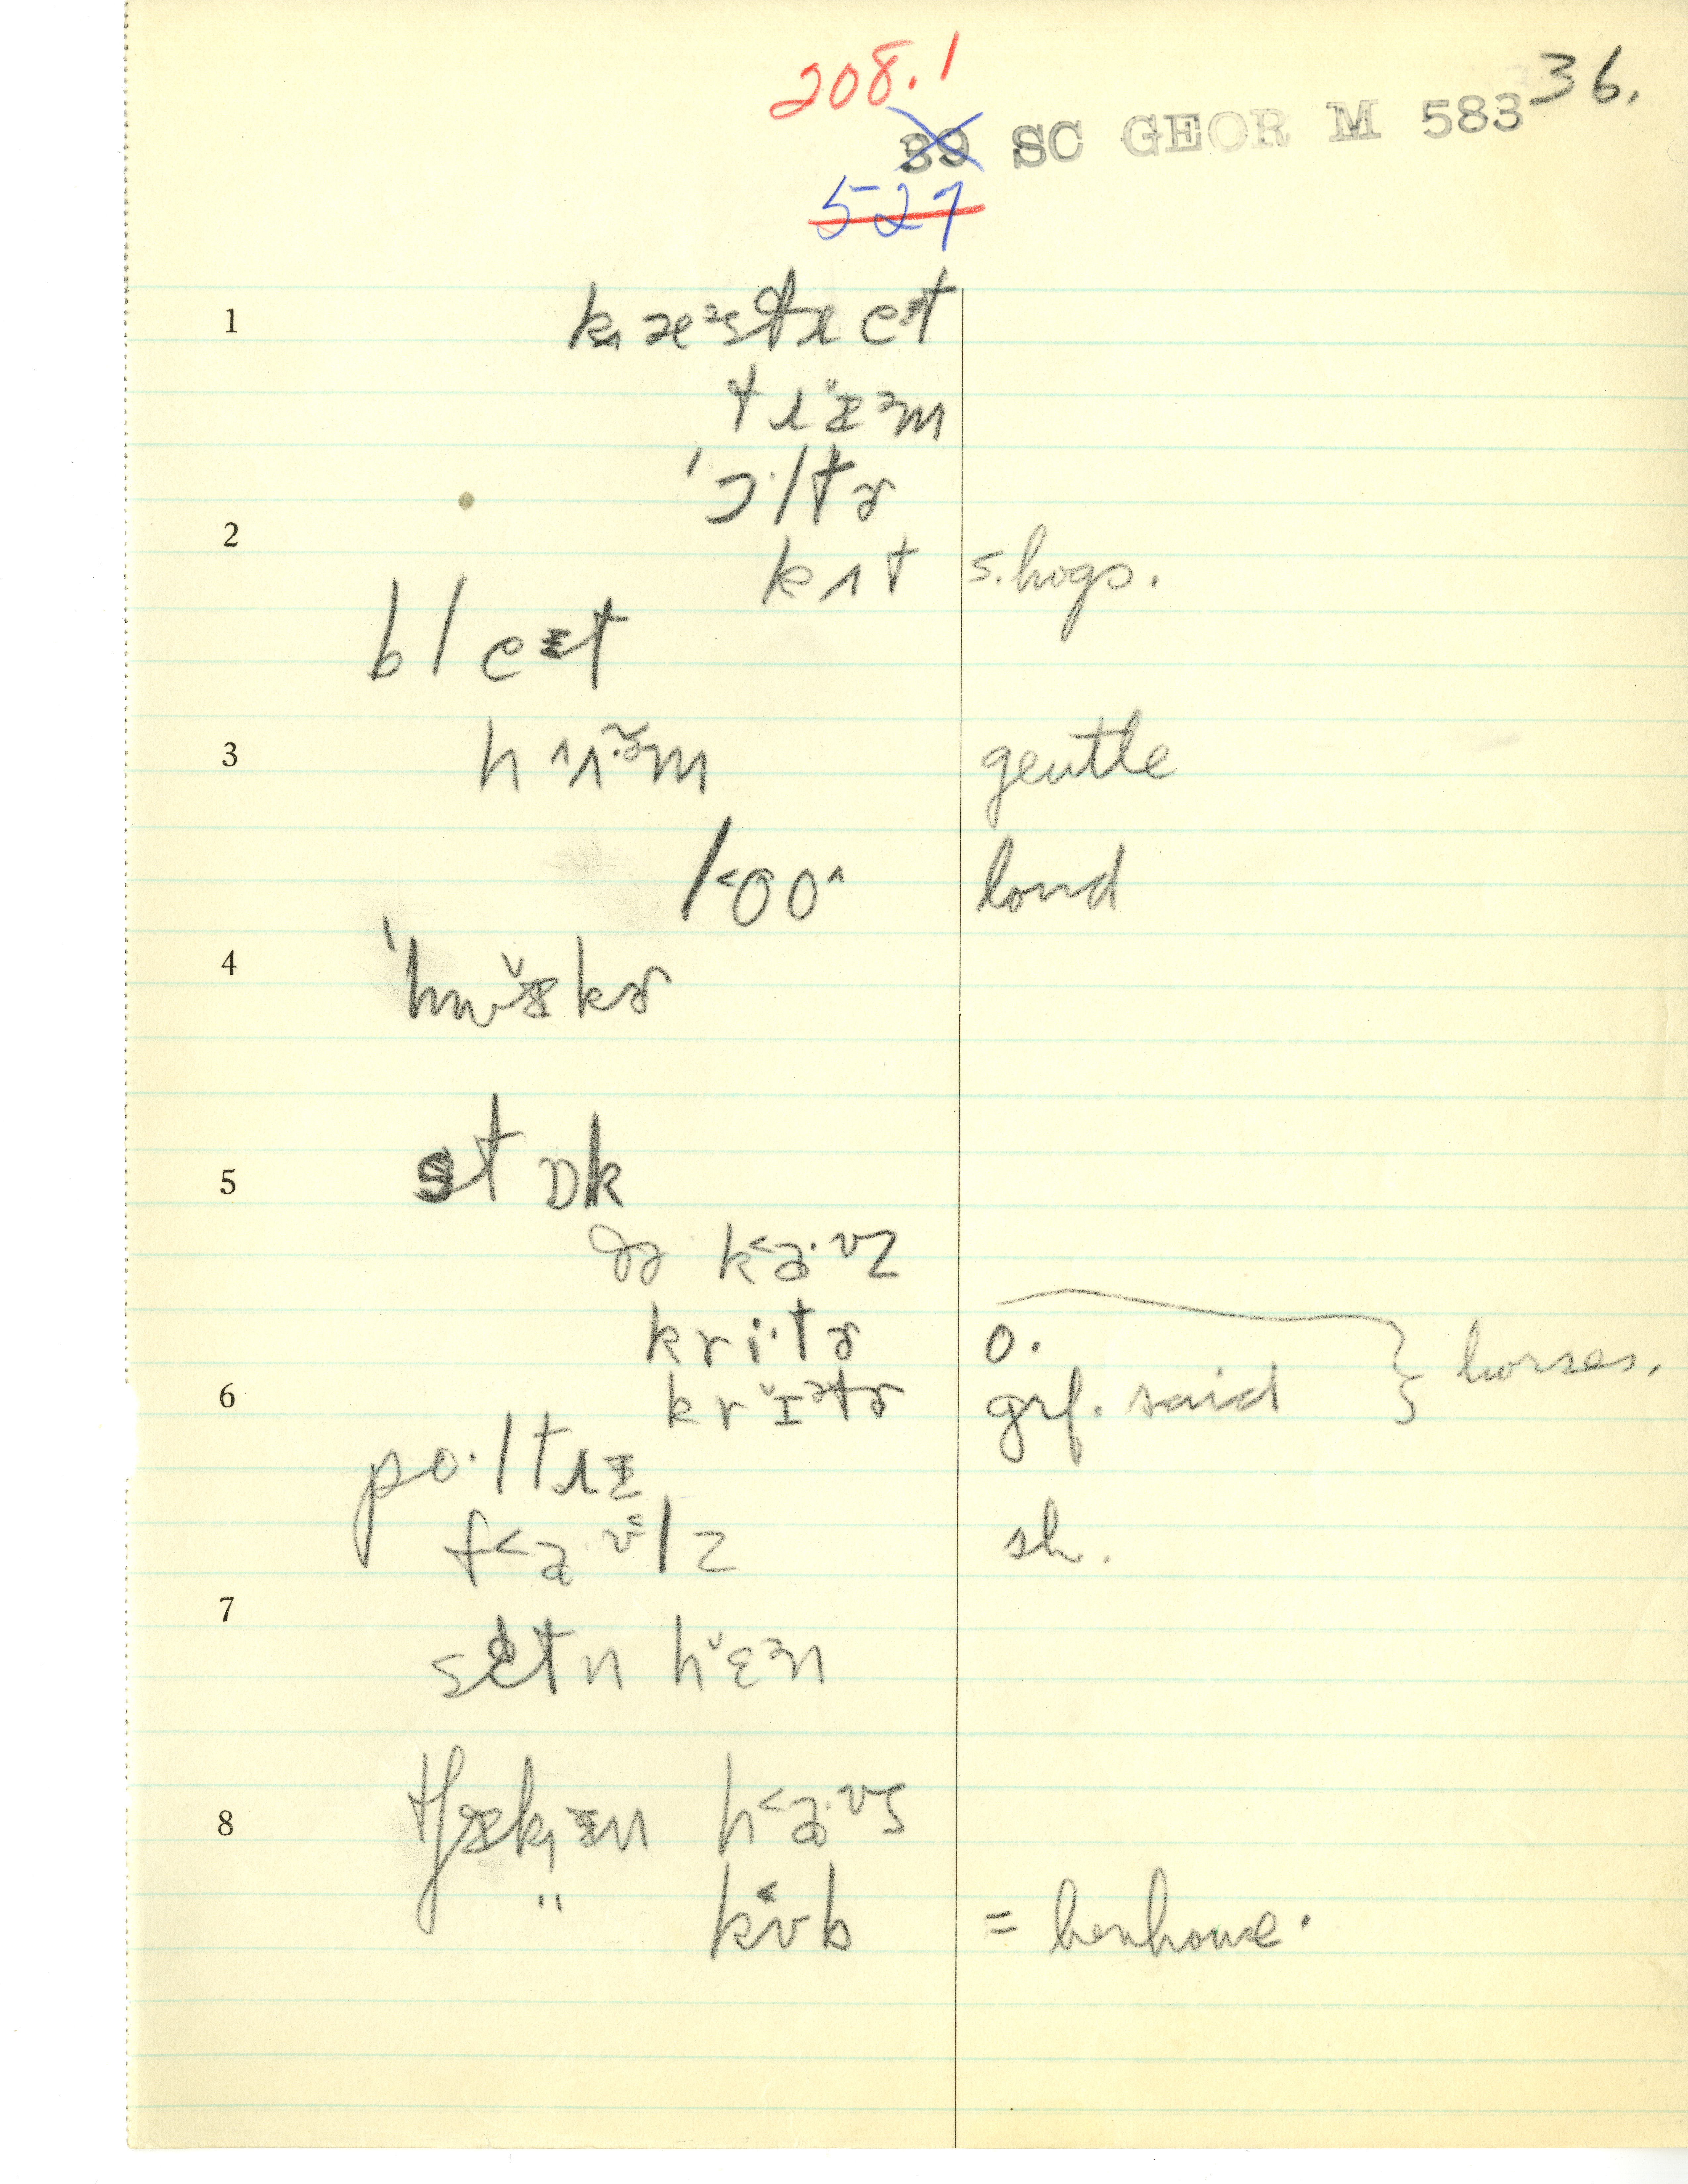 208.1
36.
39 SC GEOR M 583
527
1
kæᵊstreᵻt
trɪ̆ᵊm
2
'ɔ·ltɚ
kʌt s.hogs.
bleᵻt
3
hʌʌ·ᵊm gentle
l˂oo^ loud
4
'hwɪ̆kɚ
5
stɒk
ðə k˂a·ʊz
kri·tɚ o.
6
krɪ̆ᵊtɚ grf. said } horses.
po·ltrɪ
f˂a·ʊlz sh.
7
sɛtn hɛ̆ᵊn
8
tʃɪkɪn h˂a·ʊs
" kʊb = henhouse.